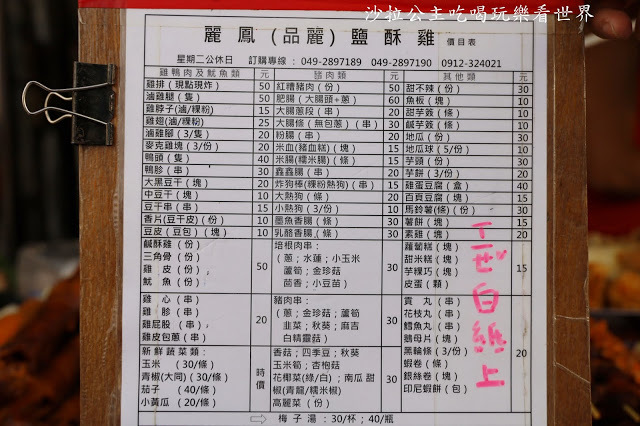 沙拉公主吃喝玩樂看世界
麗鳳(品麗)鹽酥雞 價目表
星期二公休日 訂購專線：049-2897189 049-2897190 0912-324021
雞鴨肉及魷魚類 元 豬肉類 元 其他類 元
雞排(現點現炸) 50 紅糟豬肉(份) 50 甜不辣(份) 30
滷雞腿(隻) 50 肥腸(大腸頭+蔥) 60 魚板(塊) 10
雞脖子(滷/粿粉) 15 大腸蔥段(串) 20 甜芋簽(條) 10
雞翅(滷/粿粉) 25 大腸條(無包蔥)(串) 30 鹹芋簽(條) 10
滷雞腳(3/隻) 20 粉腸(串) 20 地瓜(份) 30
麥克雞塊(3/份) 20 米血(豬血糕)(塊) 15 地瓜球(5/份) 10
鴨頭(隻) 40 米腸(糯米腸)(條) 15 芋頭(份) 30
鴨胗(串) 30 鑫鑫腸(串) 20 芋餅(3/份) 20
大黑豆干(塊) 20 炸狗棒(粿粉熱狗)(串) 15 雞蛋豆腐(盒) 40
中豆干(塊) 10 大熱狗(條) 20 百頁豆腐(塊) 15
豆干串(串) 15 小熱狗(3/份) 10 馬鈴薯條(份) 30
香片(豆干皮)(份) 10 墨魚香腸(條) 30 薯餅(塊) 15
豆皮(豆包)(塊) 10 乳酪香腸(條) 30 素雞(塊) 20
鹹酥雞(份)
三角骨(份)
雞皮(份)
魷魚(份)
50
培根肉串：
(蔥；水蓮；小玉米
蘆筍；金珍菇
茴香；小豆苗)
30
蘿蔔糕(塊)
甜米糕(塊)
芋粿巧(塊)
皮蛋(顆)
15
雞心(串)
雞胗(串)
雞屁股(串)
雞皮包蔥(串)
20
豬肉串：
(蔥；金珍菇；蘆筍
韭菜；秋葵；麻吉
白精靈菇)
30
貢丸(串)
花枝丸(串)
鱈魚丸(串)
鵝母片(塊)
黑輪條(3/份)
蝦卷(條)
銀絲卷(條)
印尼蝦餅(包)
20
新鮮蔬菜類：
玉米(30/條)
青椒(大同)(30/條)
茄子(40/條)
小黃瓜(20/條)
時價
香菇；四季豆；秋葵
玉米筍；杏苞菇
花椰菜(綠/白)；南瓜 甜
椒(青龍/糯米椒)
高麗菜(份)
30
白
上
梅子湯：30/杯；40/瓶